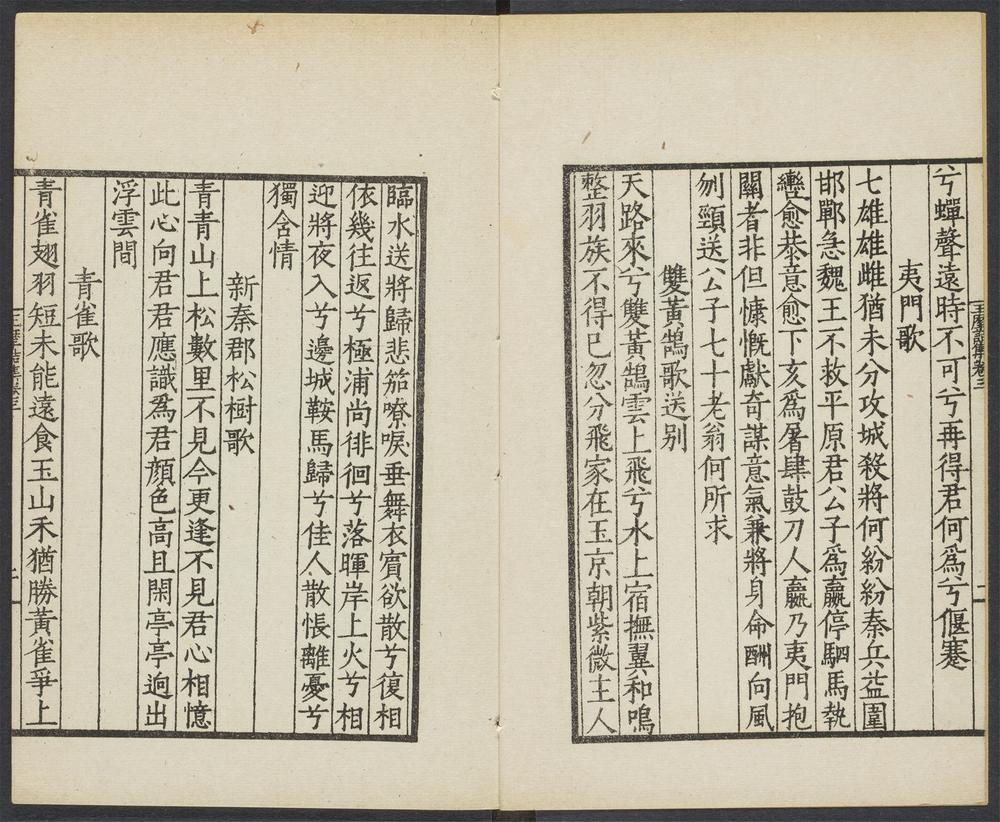 兮蟬聲遠時不可兮再得君何爲兮偃蹇
夷門歌
七雄雄雌猶未分攻城殺將何紛紛秦兵益圍
邯鄲急魏王不救平原君公子爲嬴停駟馬執
轡愈恭意愈下亥爲屠肆鼓刀人嬴乃夷門抱
關者非但慷慨獻奇謀意氣兼將身命酬向風
刎頸送公子七十老翁何所求
雙黃鵠歌送别
天路來兮雙黃鵠雲上飛兮水上宿撫翼和鳴
整羽族不得已忽分飛家在玉京朝紫微主人
臨水送將歸悲笳嘹唳垂舞衣賓欲散兮復相
依幾往返兮極浦尚徘徊兮落暉岸上火兮相
迎將夜入兮邊城鞍馬歸兮佳人散悵離憂兮
獨含情
新秦郡松樹歌
青青山上松數里不見今更逢不見君心相憶
此心向君君應識爲君顏色高且閑亭亭迥出
浮雲間
青雀歌
青雀翅羽短未能遠食玉山禾猶勝黃雀爭上